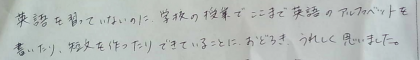 英語を習っていないのに、学校の授業でここまで英語のアルファベットを
書いたり、短文を作ったりできていることに、おどろき、うれしく思いました。